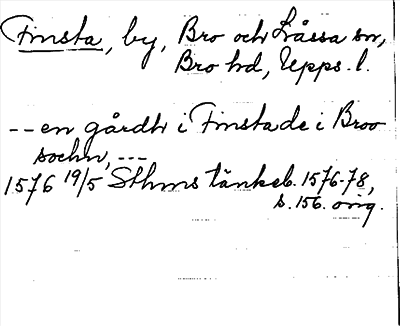 Finsta, by, Bro och Låssa sn,
Bro hd, Upps. l.
-- en gårdh i Finstade i Broo
sochn, ---
1576 19/5 Sthms tänkeb. 1576-78,
s. 156. orig.